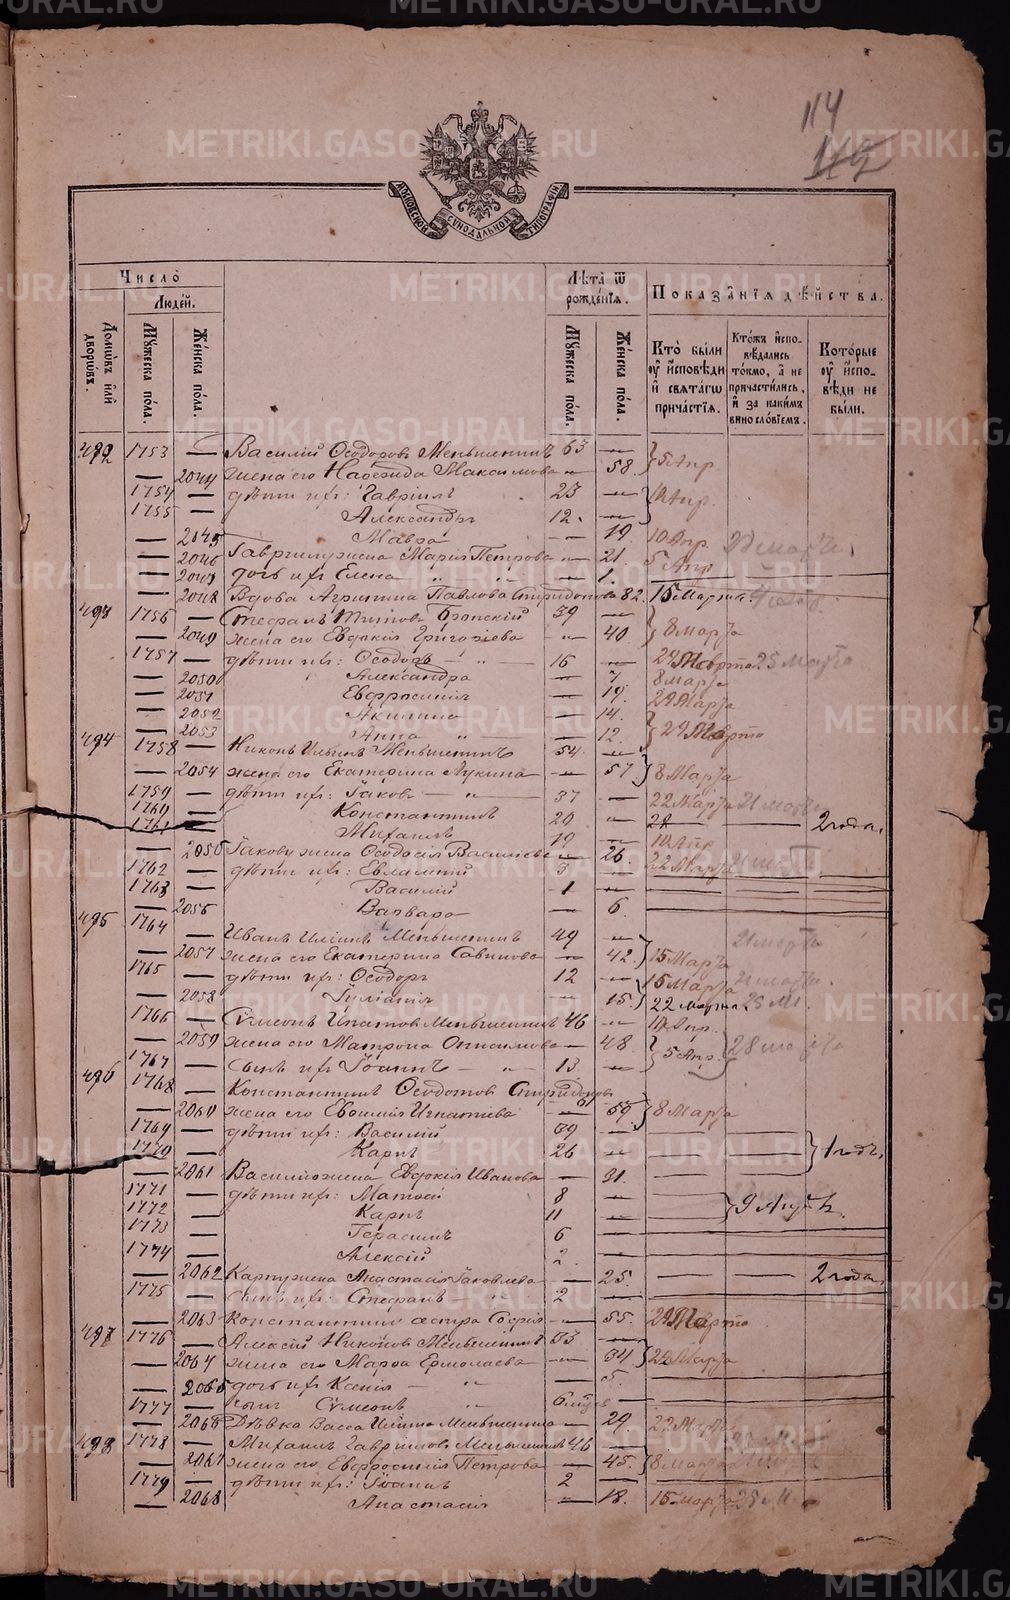 METRIKI.GASO-URAL.RU
114
МОСКОВСКОЙ СѴНОДАЛЬНОЙ ТИПОГРАФІИ
Число̀
Людей.
Домѡвъ или дворѡвъ.
Мꙋжеска пола.
Женска пола.
Лѣта ѿ рожденїѧ.
Мꙋжеска пола.
Женска пола.
Показанїѧ дѣйства.
Кто̀ были ꙋ исповѣди и свѧтагѡ причастїѧ.
Ктожъ исповѣдались токмо, а не причастились, и за какимъ винословїемъ.
Которые ꙋ исповѣди не были.
492 1753 — Василій Ѳеодоровъ Меньшенинъ 63 —
— 2044 жена его Надежда Максимова — 58 } 5 Апр
1754 — дѣти ихъ: Гавріилъ 23 —
1755 — Александръ 12 — } 10 Апр.
— 2045 Мавра — 19. 10 Апр.
— 2046 Гавріилу жена Марія Петрова — 21. 5 Апр
— 2047 дочь ихъ Елена — 1.
— 2048 Вдова Агрипина Павлова Спиридонова 82. 15 Марта.
493 1756 — Стефанъ Титовъ 39 —
— 2049 жена его Евдокія Григоріева — 40 } 8 Марта
1757 — дѣти ихъ: Ѳеодоръ 16 — 24 Марта 25 Марта
— 2050 Александра — 7 8 Марта
— 2051 Евфросинія — 19. 24 Марта
— 2052 Акилина — 14.
— 2053 Анна — 12. } 24 Марта
494 1758 — Никонъ Ильинъ Меньшенинъ 54 —
— 2054 жена его Екатерина Лукина — 57 } 8 Марта
1759 — дѣти ихъ: Іаковъ 37 — 22 Марта 21 марта
1760 — Константинъ 20 — 2 года.
1761 — Михаилъ 19 — 10 Апр
— 2055 Іакову жена Ѳеодосія Василіева — 26 22 Марта
1762 — дѣти ихъ: Евлампій 3 —
1763 — Василій 1 —
— 2056 Варвара — 6.
495 1764 — Иванъ Ильинъ Меньшенинъ 49 —
— 2057 жена его Екатерина Саввинова — 42. } 15 Марта
1765 — дѣти ихъ: Ѳеодоръ 12 — 15 Марта
— 2058 Іуліанія — 15. 22 марта.
1766 — Сѵмеонъ Ипатовъ Меньшенинъ 46 — 10 Апр.
— 2059 жена его Матрона Онисимова — 48.
1767 — сынъ ихъ Іоаннъ 13 — } 5 Апр. 28 марта
496 1768 — Константинъ Ѳеодотовъ Спиридоновъ 61
— 2060 жена его Евѳимія Игнатіева — 59 } 8 Марта
1769 — дѣти ихъ: Василій 39 —
1770 — Карпъ 26 — } 1 годъ.
— 2061 Василію жена Евдокія Иванова — 31.
1771 — дѣти ихъ: Матѳей 8 —
1772 — Карпъ 11 —
1773 — Герасимъ 6 —
1774 — Алексій 2 —
— 2062 Карпу жена Анастасія Іаковлева — 25. 2 года.
1775 — сынъ ихъ: Стефанъ 2 —
— 2063 Константину сестра Софія — 55. 24 Марта
497 1776 — Алексій Никоновъ Меньшенинъ 33 —
— 2064 жена его Марѳа Ермолаева — 34 } 22 Марта
— 2065 дочь ихъ Ксенія — 5.
1777 — сынъ Сѵмеонъ
— 2066 Дѣвка Васса Ильина Меньшенина — 29.
498 1778 — Михаилъ Гавриловъ Меньшенинъ 46 —
— 2067 жена его Евфросинія Петрова — 45. } 8 марта
1779 — дѣти ихъ: Іоаннъ 2 —
— 2068 Анастасія — 18. 15 марта